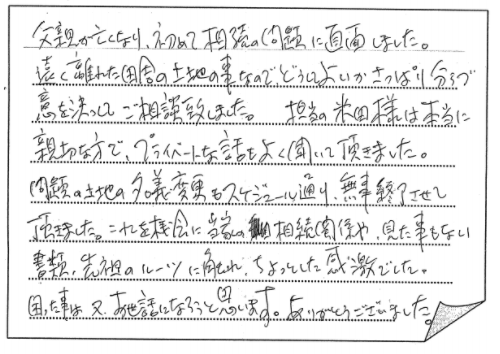 父親が亡くなり、初めて相続の問題に直面しました。
遠く離れた田舎の土地の事なので、どうしてよいかさっぱり分らず
意を決してご相談致しました。 担当の米田様は本当に
親切な方で、プライベートな話もよく聞いて頂きました。
問題の土地の名義変更もスケジュール通り、無事終了させて
頂きました。これを機会に当家の相続関係や、見た事もない
書類、先祖のルーツに触れ、ちょっとした感激でした。
困った事は又、お世話になろうと思います。ありがとうございました。